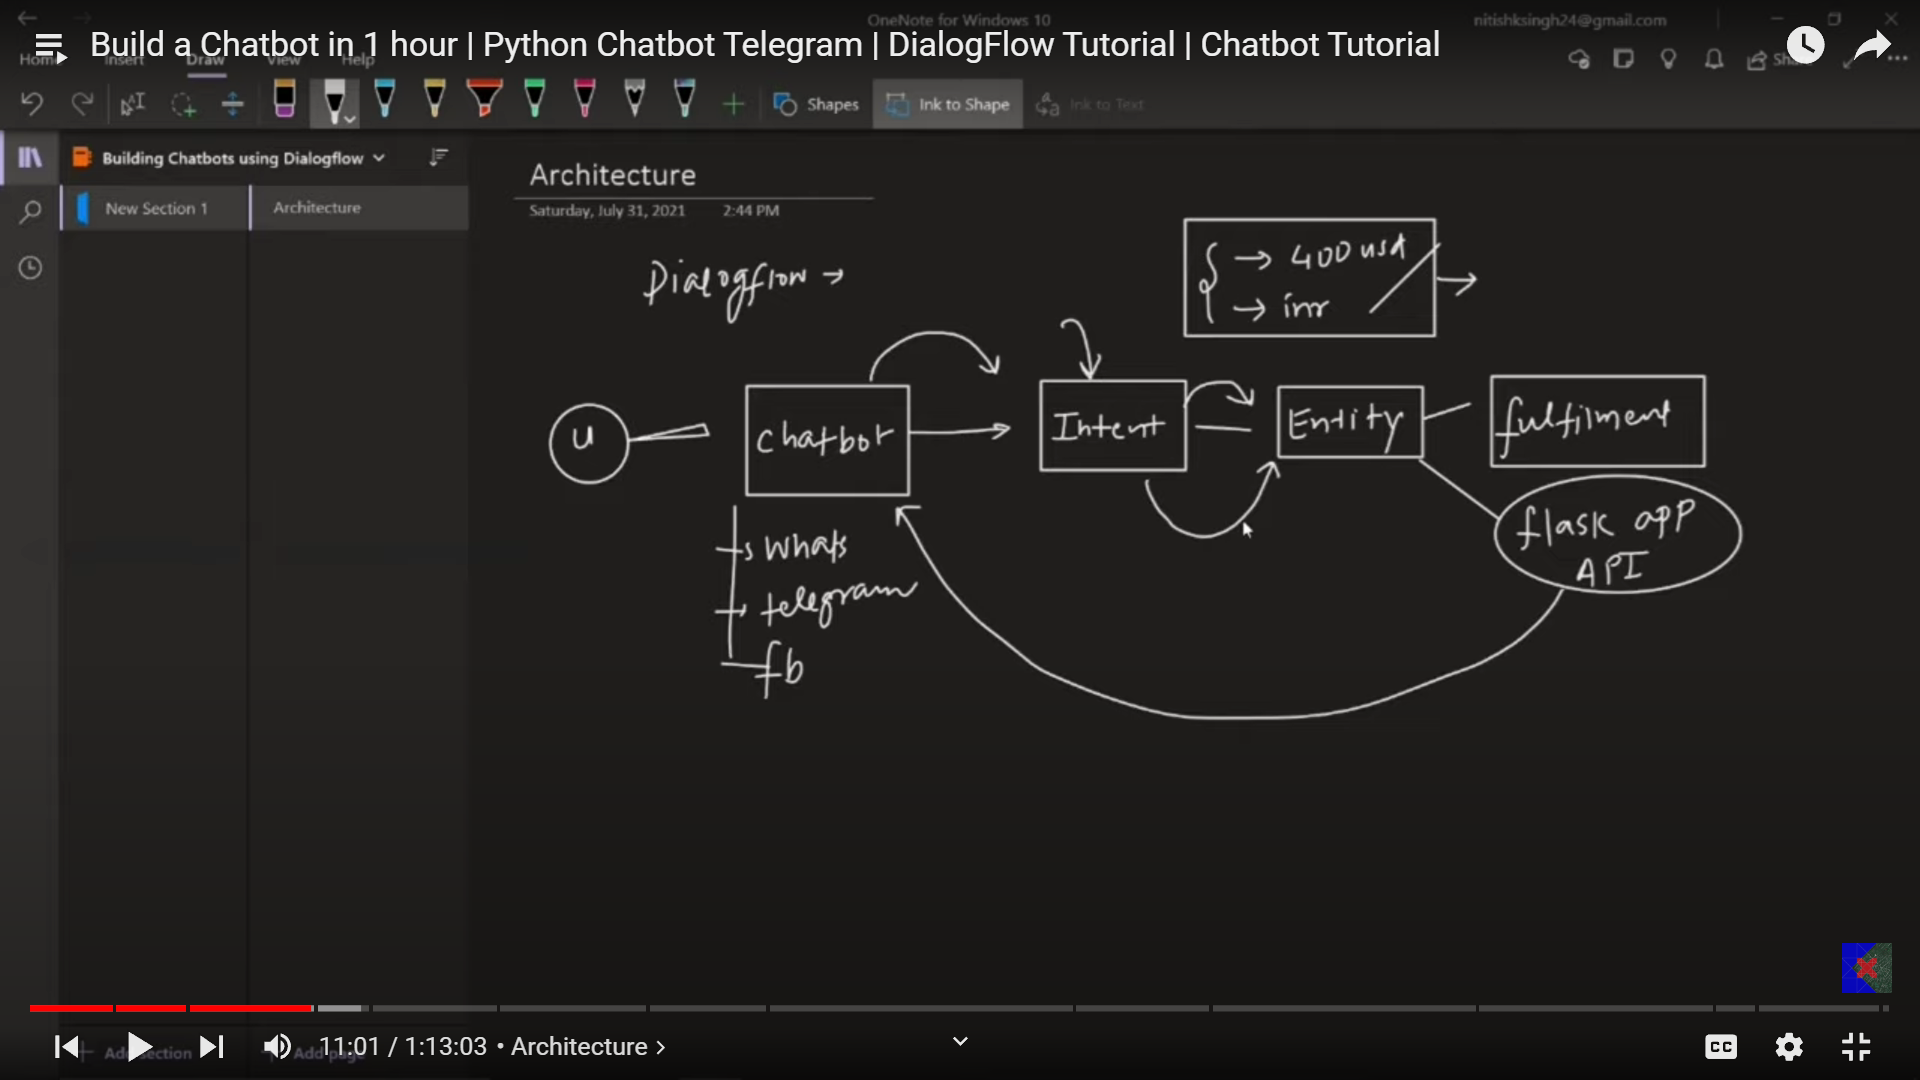 OneNote for Windows 10
nitishksingh24@gmail.com
Build a Chatbot in 1 hour | Python Chatbot Telegram | DialogFlow Tutorial | Chatbot Tutorial
Home Insert Draw View Help
Shapes Ink to Shape Ink to Text
Building Chatbots using Dialogflow
New Section 1 Architecture
Architecture
Saturday, July 31, 2021 2:44 PM
Dialogflow →
→ 400 usd
→ inr
u
Chatbot
Intent
Entity
fulfilment
flask app
API
Whats
telegram
fb
Add section Add page
11:01 / 1:13:03 • Architecture >
CC